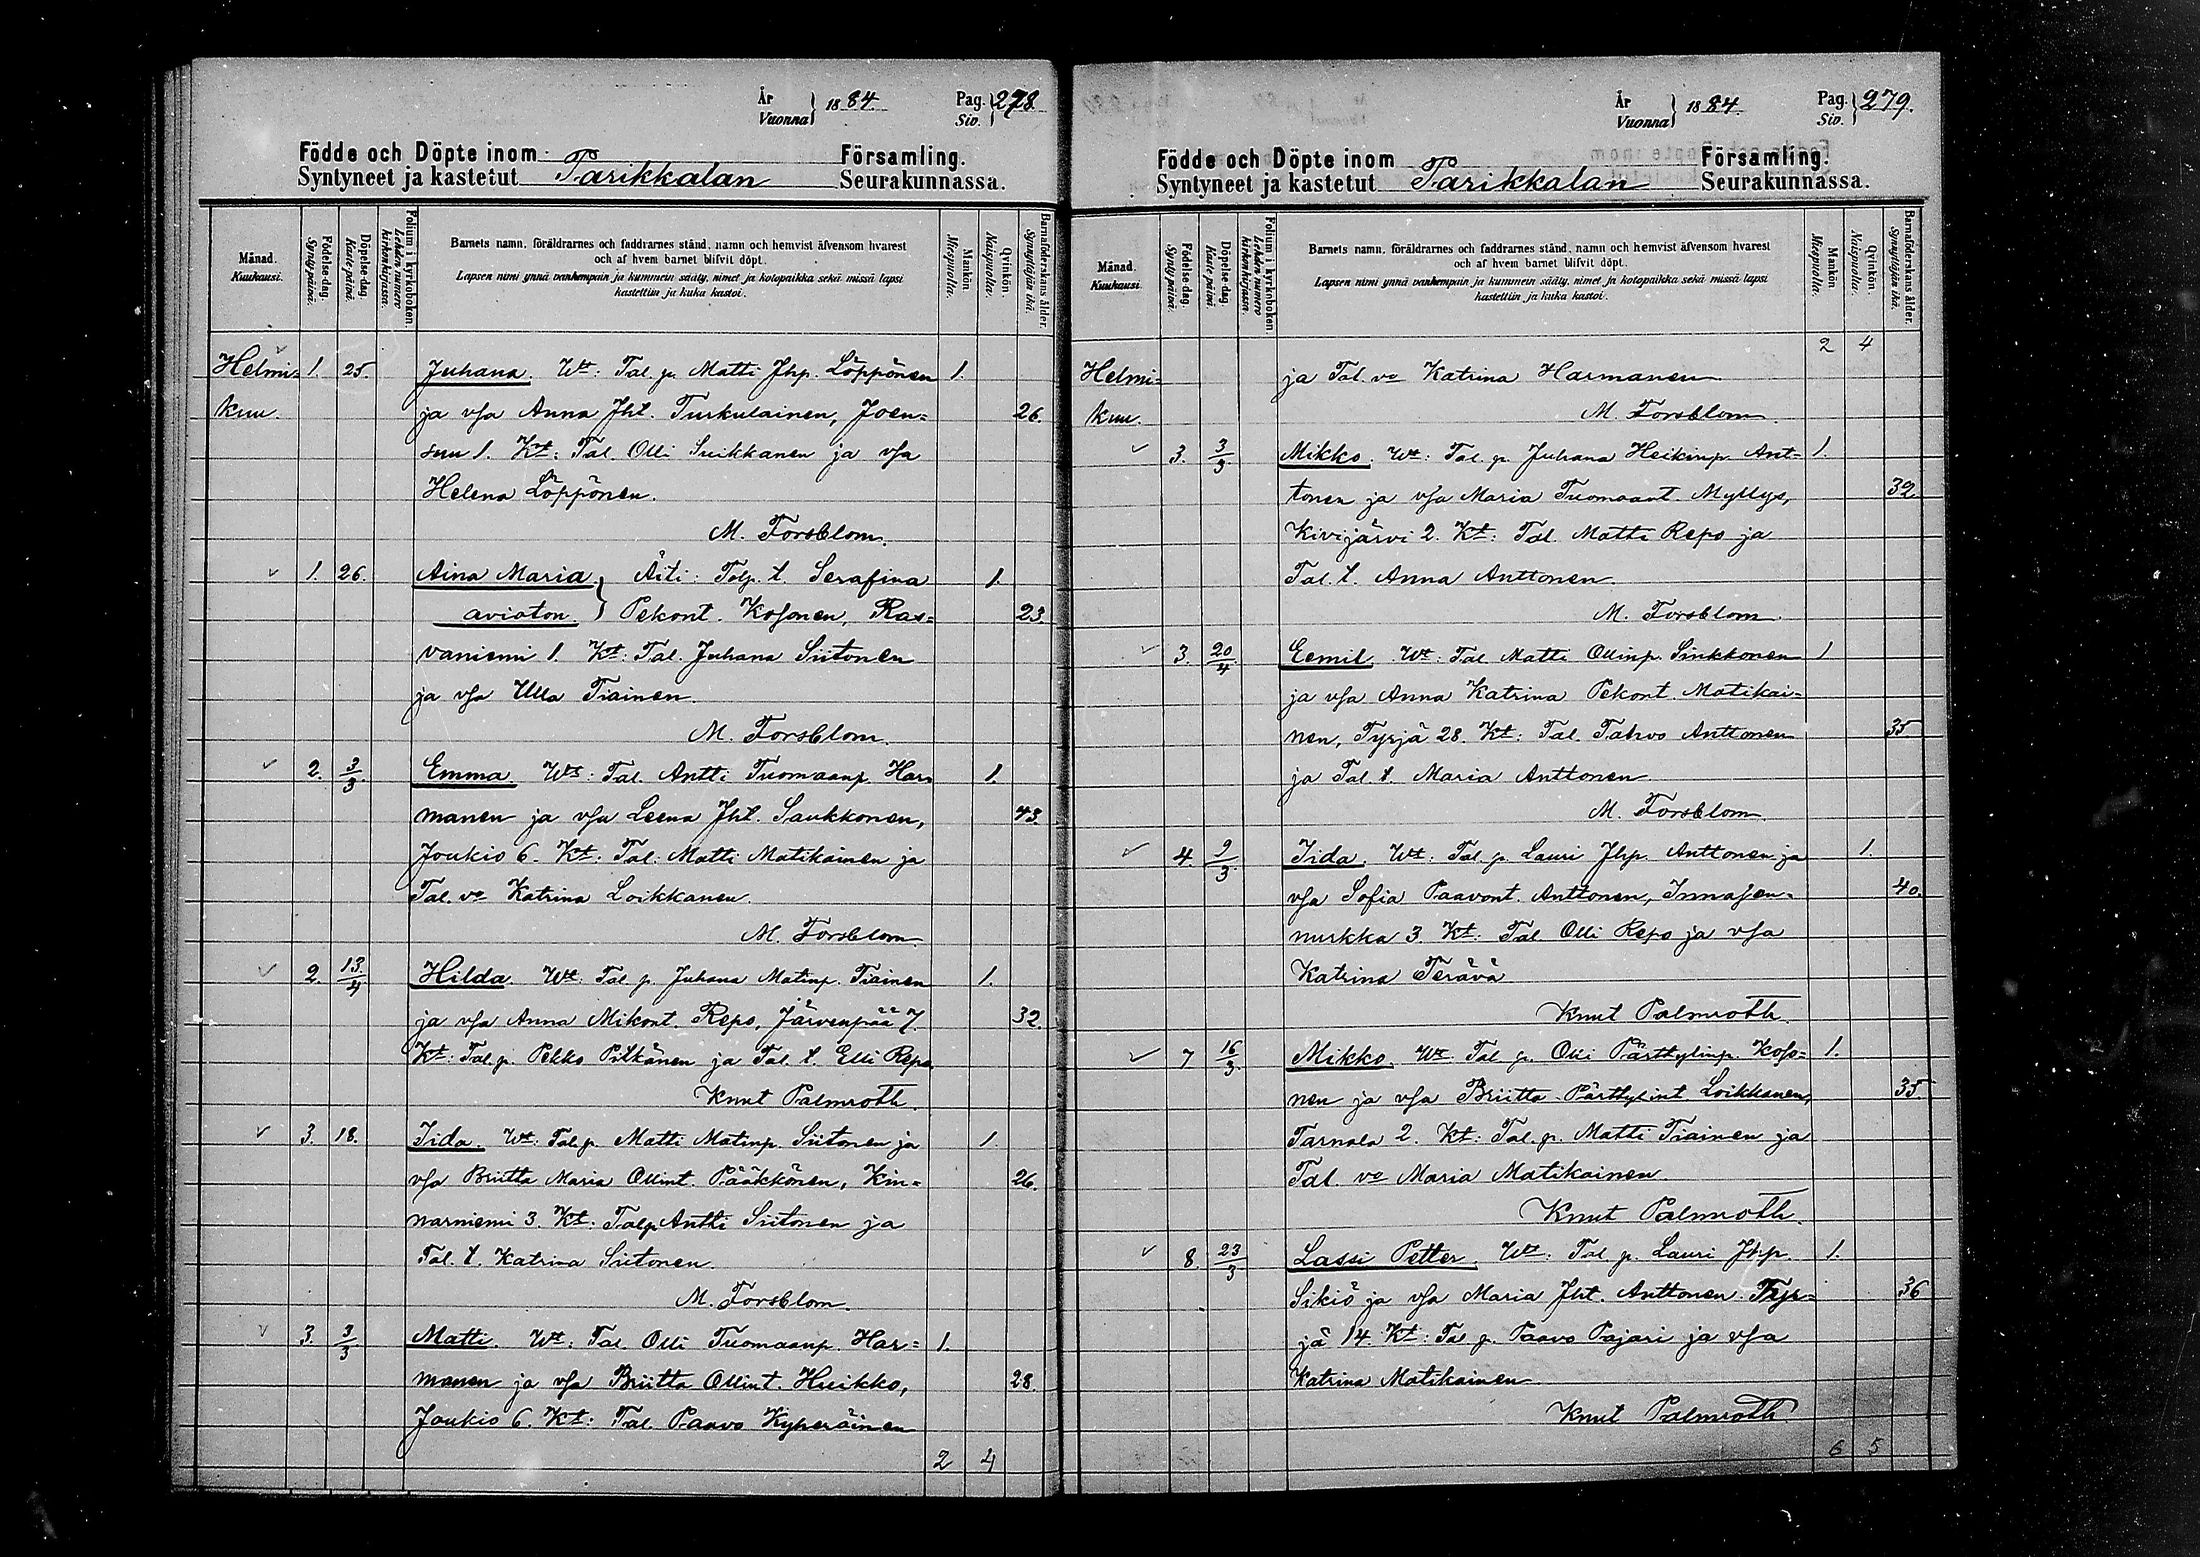 År
Vuonna } 1884. Pag. Siv. } 278.
Födde och Döpte inom Församling.
Syntyneet ja kastetut Parikkalan Seurakunnassa.
Månad. Kuukausi.
Födelse-dag. Syntypäivä.
Döpelse-dag. Kastepäivä.
Folium i kyrkoboken. Lehden numero kirkonkirjassa.
Barnets namn, föräldrarnes och faddrarnes stånd, namn och hemvist äfvensom hvarest
och af hvem barnet blifvit döpt.
Lapsen nimi ynnä vanhempain ja kummein sääty, nimet ja kotopaikka sekä missä lapsi
kastettiin ja kuka kastoi.
Mankön. Miespuolia.
Qvinkön. Naispuolia.
Barnaföderskans ålder. Synnyttäjän ikä.
Helmi= 1. 25. Juhana. Wt: Tal. p. Matti Jhp. Löppönen 1.
kuu. ja vsa Anna Jht. Turkulainen, Joen= 26.
suu 1. Kt: Tal. Olli Suikkanen ja vsa
Helena Löppönen.
M. Forsblom.
1. 26. Aina Maria } Äiti: Talp. t. Serafina 1.
aviaton. } Pekont. Kosonen, Ras= 23.
vaniemi 1. Kt: Tal. Juhana Siitonen
ja vsa Ulla Tiainen.
M. Forsblom.
2. 3/3. Emma. Wt: Tal. Antti Tuomaanp. Har= 1.
manen ja vsa Leena Jht. Saukkonen, 43.
Joukio 6. Kt: Tal. Matti Matikainen ja
Tal. vo Katrina Loikkanen.
M. Forsblom.
2. 13/4. Hilda. Wt: Tal. p. Juhana Matinp. Tiainen 1.
ja vsa Anna Mikont. Repo, Järvenpää 7. 32.
Kt: Tal. p. Pekko Pitkänen ja Tal. t. Elli Repo
Knut Palmroth.
3. 18. Iida. Wt: Tal. p. Matti Matinp. Siitonen ja 1.
vsa Briitta Maria Ollint. Pääkkönen, Kin= 26.
narniemi 3. Kt: Talp Antti Siitonen ja
Tal. t. Katrina Siitonen.
M. Forsblom.
3. 3/3. Matti. Wt: Tal. Olli Tuomaanp. Har= 1.
manen ja vsa Briitta Ollint. Huikko, 28.
Joukio 6. Kt: Tal. Paavo Kyheräinen
2 4
År
Vuonna } 1884. Pag. Siv. } 279.
Födde och Döpte inom Församling.
Syntyneet ja kastetut Parikkalan Seurakunnassa.
Månad. Kuukausi.
Födelse-dag. Syntypäivä.
Döpelse-dag. Kastepäivä.
Folium i kyrkoboken. Lehden numero kirkonkirjassa.
Barnets namn, föräldrarnes och faddrarnes stånd, namn och hemvist äfvensom hvarest
och af hvem barnet blifvit döpt.
Lapsen nimi ynnä vanhempain ja kummein sääty, nimet ja kotopaikka sekä missä lapsi
kastettiin ja kuka kastoi.
Mankön. Miespuolia.
Qvinkön. Naispuolia.
Barnaföderskans ålder. Synnyttäjän ikä.
2 4
Helmi= ja Tal. vo Katrina Harmanen
kuu. M. Forsblom.
3. 3/3. Mikko. Wt: Tal. p. Juhana Heikinp. Ant= 1.
tonen ja vsa Maria Tuomaant. Myllys, 32.
Kivijärvi 2. Kt: Tal. Matti Repo ja
Tal. t. Anna Anttonen.
M. Forsblom.
3. 20/4 Eemil. Wt: Tal Matti Ollinp. Sinkkonen 1
ja vsa Anna Katrina Pekont. Matikai=
nen, Tyrjä 28. Kt: Tal. Tahvo Anttonen 35
ja Tal. t. Maria Anttonen
M. Forsblom.
4 9/3. Iida. Wt: Tal. p. Lauri Jhp. Anttonen ja 1.
vsa Sofia Paavont. Anttonen, Innasen= 40.
nurkka 3. Kt: Tal. Olli Repo ja vsa
Katrina Terävä
Knut Palmroth.
7 16/3. Mikko. Wt: Tal p. Olli Pärttylinp. Koso= 1.
nen ja vsa Briitta Pärttylint Loikkanen, 35.
Tarnala 2. Kt: Tal. p. Matti Tiainen ja
Tal. vo Maria Matikainen
Knut Palmroth.
8. 23/3 Lassi Petter. Wt: Tal. p. Lauri Jhp. 1.
Sikiö ja vsa Maria Jht. Anttonen Tyr= 36
jä 14. Kt: Tal p. Paavo Pajari ja vsa
Katrina Matikainen
Knut Palmroth.
6 5